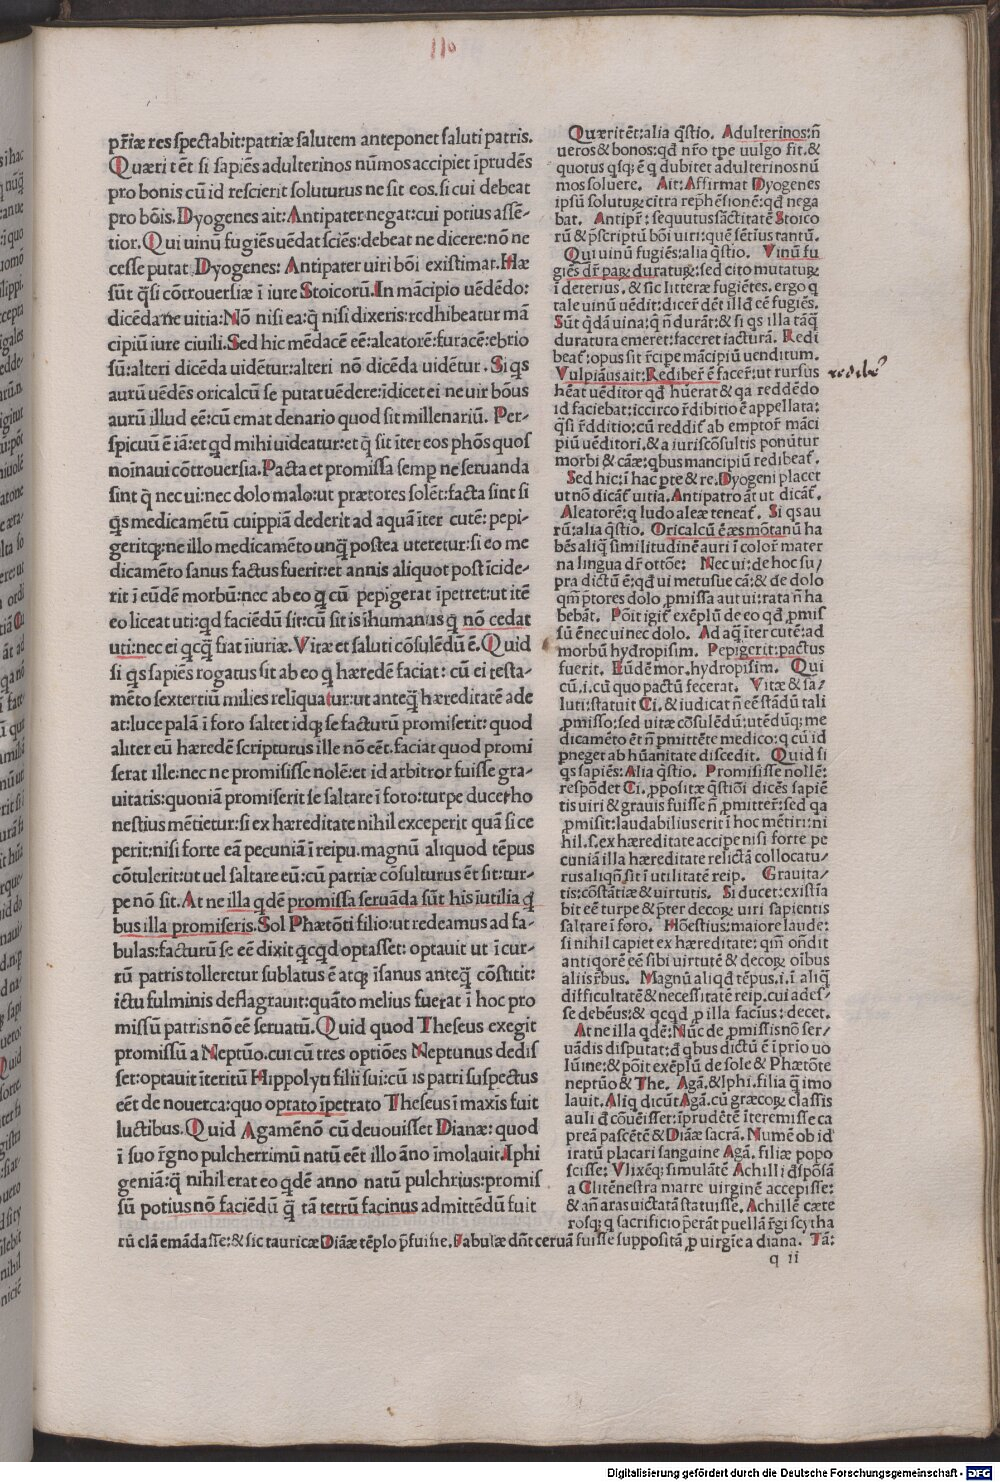 110
pr̄iæ res spectabit:patriæ salutem anteponet saluti patris.
Quærit ēt si sapiēs adulterinos nūmos accipiet īprudēs
pro bonis cū id rescierit soluturus ne sit eos.si cui debeat
pro bōis.Dyogenes ait:Antipater negat:cui potius assē-
tior.Qui uinū fugiēs uēdat sciēs:debeat ne dicere:nō ne
cesse putat Dyogenes: Antipater uiri bōi existimat.Hæ
sūt q̄si cōtrouersiæ ī iure Stoicorū.In mācipio uēdēdo:
dicēda ne uitia:Nō nisi ea:q̄ nisi dixeris:redhibeatur mā
cipiū iure ciuili.Sed hic mēdacē eē:aleatorē:furacē:ebrio
sū:alteri dicēda uidētur:alteri nō dicēda uidētur.Si qs
aurū uēdēs oricalcū se putat uēdere:idicet ei ne uir bōus
aurū illud eē:cū emat denario quod sit millenariū. Per-
spicuū ē iā:et qd mihi uideatur:et q̄ sit īter eos phōs quos
noīnaui cōtrouersia.Pacta et promissa semp ne seruanda
sint q̄ nec ui:nec dolo malo:ut prætores solēt:facta sint si
q̄s medicamētū cuippiā dederit ad aquā īter cutē: pepi-
geritq;:ne illo medicamēto unq̄ postea uteretur:si eo me
dicamēto sanus factus fuerit:et annis aliquot post īcide-
rit ī eūdē morbū:nec ab eo q cū pepigerat īpetret:ut itē
eo liceat uti:qd faciēdū sit:cū sit is īhumanus q nō cedat
uti:nec ei qcq̄ fiat iīuriæ.Vitæ et saluti cōsulēdū ē.Quid
si qs sapiens rogatus sit ab eo q hæredē faciat: cū ei testa-
mēto sextertiū milies reliquatur:ut anteq̄ hæreditatē ade
at:luce palā ī foro saltet idq; se facturū promiserit: quod
aliter eū hæredē scripturus ille nō eēt.faciat quod promi
serat ille:nec ne promisisse nolē:et id arbitror fuisse gra-
uitatis:quoniā promiserit se saltare ī foro:turpe ducet:ho
nestius mētietur:si ex hæreditate nihil exceperit quā si ce
perit:nisi forte eā pecuniā ī reipu.magnū aliquod tēpus
cōtulerit:ut uel saltare eū:cū patriæ cōsulturus ēt sit:tur-
pe nō sit.At ne illa qdē promissa seruāda sūt his iutilia q̄
bus illa promiseris.Sol Phætōti filio:ut redeamus ad fa-
bulas:facturū se eē dixit qcqd optasset: optauit ut ī cur-
rū patris tolleretur sublatus ē atq; īsanus anteq̄ cōstitit:
ictu fulminis deflagrauit:quāto melius fuerat ī hoc pro
missū patris nō eē seruatū.Quid quod Theseus exegit
promissū a Neptūo.cui cū tres optiōes Neptunus dedis
set:optauit īteritū Hippolyti filii sui:cū is patri suspectus
eēt de nouerca:quo optato īpetrato Theseus ī maxīs fuit
luctibus.Quid Agamēnō cū deuouisset Dianæ: quod
ī suo r̄gno pulcherrimū natū eēt illo āno īmolauit.Iphi
geniā:q̄ nihil erat eo qdē anno natū pulchrius:promis
sū potius nō faciēdū q̄ tā tetrū facinus admittēdū fuit
Quærit ēt:alia q̄stio. Adulterinos:n̄
ueros & bonos:qd nr̄o tpe uulgo fit.&
quotus qsq; ē q dubitet adulterinos nū
mos soluere. Ait: Affirmat Dyogenes
ipsū soluturū citra rephēsionē:qd nega
bat. Antipr̄: sequutus sāctitatē Stoico
rū & p̄scriptū bōi uiri:quē sētius tantū.
Qui uinū fugiēs:alia q̄stio. Vinū fu
giēs dr̄ parū duraturū:sed cito mutatur
ī deterius. & sic litteræ fugiētes. ergo q
tale uinū uēdit:dicer̄ dēt illd eē fugiēs.
Sūt q̄dā uina:q̄ n̄ durāt:& si qs illa tāq̄
duratura emeret:faceret iacturā. Redi
beat̄:opus sit r̄cipe mācipiū uenditum.
Vulpiāus ait:Rediber̄ ē facer̄:ut rursus
hēat uēditor qd hūerat & qa reddēdo
id faciebat:iccirco r̄dibitio ē appellata:
q̄si r̄dditio:cū reddit̄ ab emptor̄ māci
piū uēditori.& a iuriscōsultis ponūtur
morbi & cāæ:qbus mancipiū redibeat̄.
Sed hic:ī hac pte & re.Dyogeni placet
ut nō dicat̄ uitia.Antipatro āt ut dicat̄.
Aleatorē:q ludo aleæ teneat̄. Si qs au
rū:alia q̄stio. Oricalcū ē æs mōtanū ha
bēs aliq̄ similitudinē auri ī color̄ mater
na lingua dr̄ ottōe: Nec ui:de hoc su/
pra dictū ē:qd ui metusue cā:& de dolo
qm̄ p̄tores dolo pmissa aut ui:rata n̄ ha
bebāt. Pōit igit̄ exēplū de eo qd pmis
sū ē nec ui nec dolo. Ad aq̄ īter cutē:ad
morbū hydropisim. Pepigerit:pactus
fuerit. Eūdē mor.hydropisim. Qui
cū.i.cū quo pactū fecerat. Vitæ & sa/
luti:statuit Ci. & iudicat n̄ eē stādū tali
pmisso:sed uitæ cōsulēdū:utēdūq; me
dicamēto ēt n̄ pmittēte medico:q cū id
pneget ab hūanitate discedit. Quid si
qs sapiēs:Alia q̄stio. Promisisse nollē:
respōdet Ci. ppositæ q̄stiōi dicēs sapiē
tis uiri & grauis fuisse n̄ pmitter̄:sed qa
pmisit:laudabilius erit ī hoc mētiri:ni
hil.s.ex hæreditate accipe nisi forte pe
cuniā illa hæreditate relictā collocatu/
rus aliqn̄ sit ī utilitatē reip. Grauita/
tis:cōstātiæ & uirtutis. Si ducet:existīa
bit eē turpe & p̄ter decorū uiri sapientis
saltare ī foro. Hōestius:maiore laude:
si nihil capiet ex hæreditate: qm̄ oñdit
antiqorē eē sibi uirtutē & decorū oībus
aliis r̄bus. Magnū aliqd tēpus.i.ī aliq̄
difficultatē & necessitatē reip.cui ades/
se debēus:& qcqd p illa facīus: decet.
At ne illa qdē:Nūc de pmissis nō ser/
uādis disputat:d qbus dictū ē ī prīo uo
lūine:& pōit exēplū de sole & Phætōte
neptūo & The. Agā.& Iphi.filia q̄ īmo
lauit. Aliq dicūt Agā.cū græcorū classis
auli d cōuēisset:īprudētē īteremisse ca
preā pascētē & Diāæ sacrā. Numē ob id
iratū placari sanguine Agā. filiæ popo
scisse: Vlixēq; simulātē Achilli dspōsā
a Clitēnestra matre virginē accepisse:
& añ aras uictātā statuisse. Achillē cæte
rosq; q sacrificio p̄erāt puellā r̄gi scytha
rū clā emādasse:& sic tauricæ Diāæ tēplo p̄fuisse. Fabulæ dn̄t ceruā fuisse suppositā p uirgīe a diana. Tā:
q ii
Digitalisierung gefördert durch die Deutsche Forschungsgemeinschaft - DFG